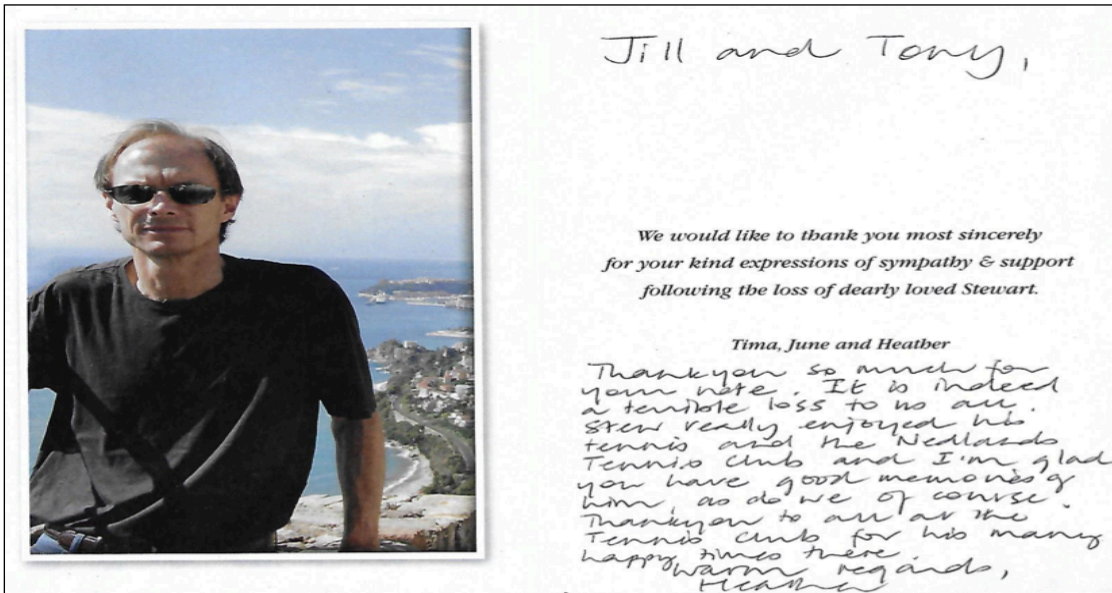 Jill and Tony,
We would like to thank you most sincerely
for your kind expressions of sympathy & support
following the loss of dearly loved Stewart.
Tima, June and Heather
Thankyou so much for
your note. It is indeed
a terrible loss to us all.
Stew really enjoyed his
tennis and the Nedlands
Tennis Club and I'm glad
you have good memories of
him as do we of course.
Thankyou to all at the
Tennis Club for his many
happy times there.
Warm regards,
Heather